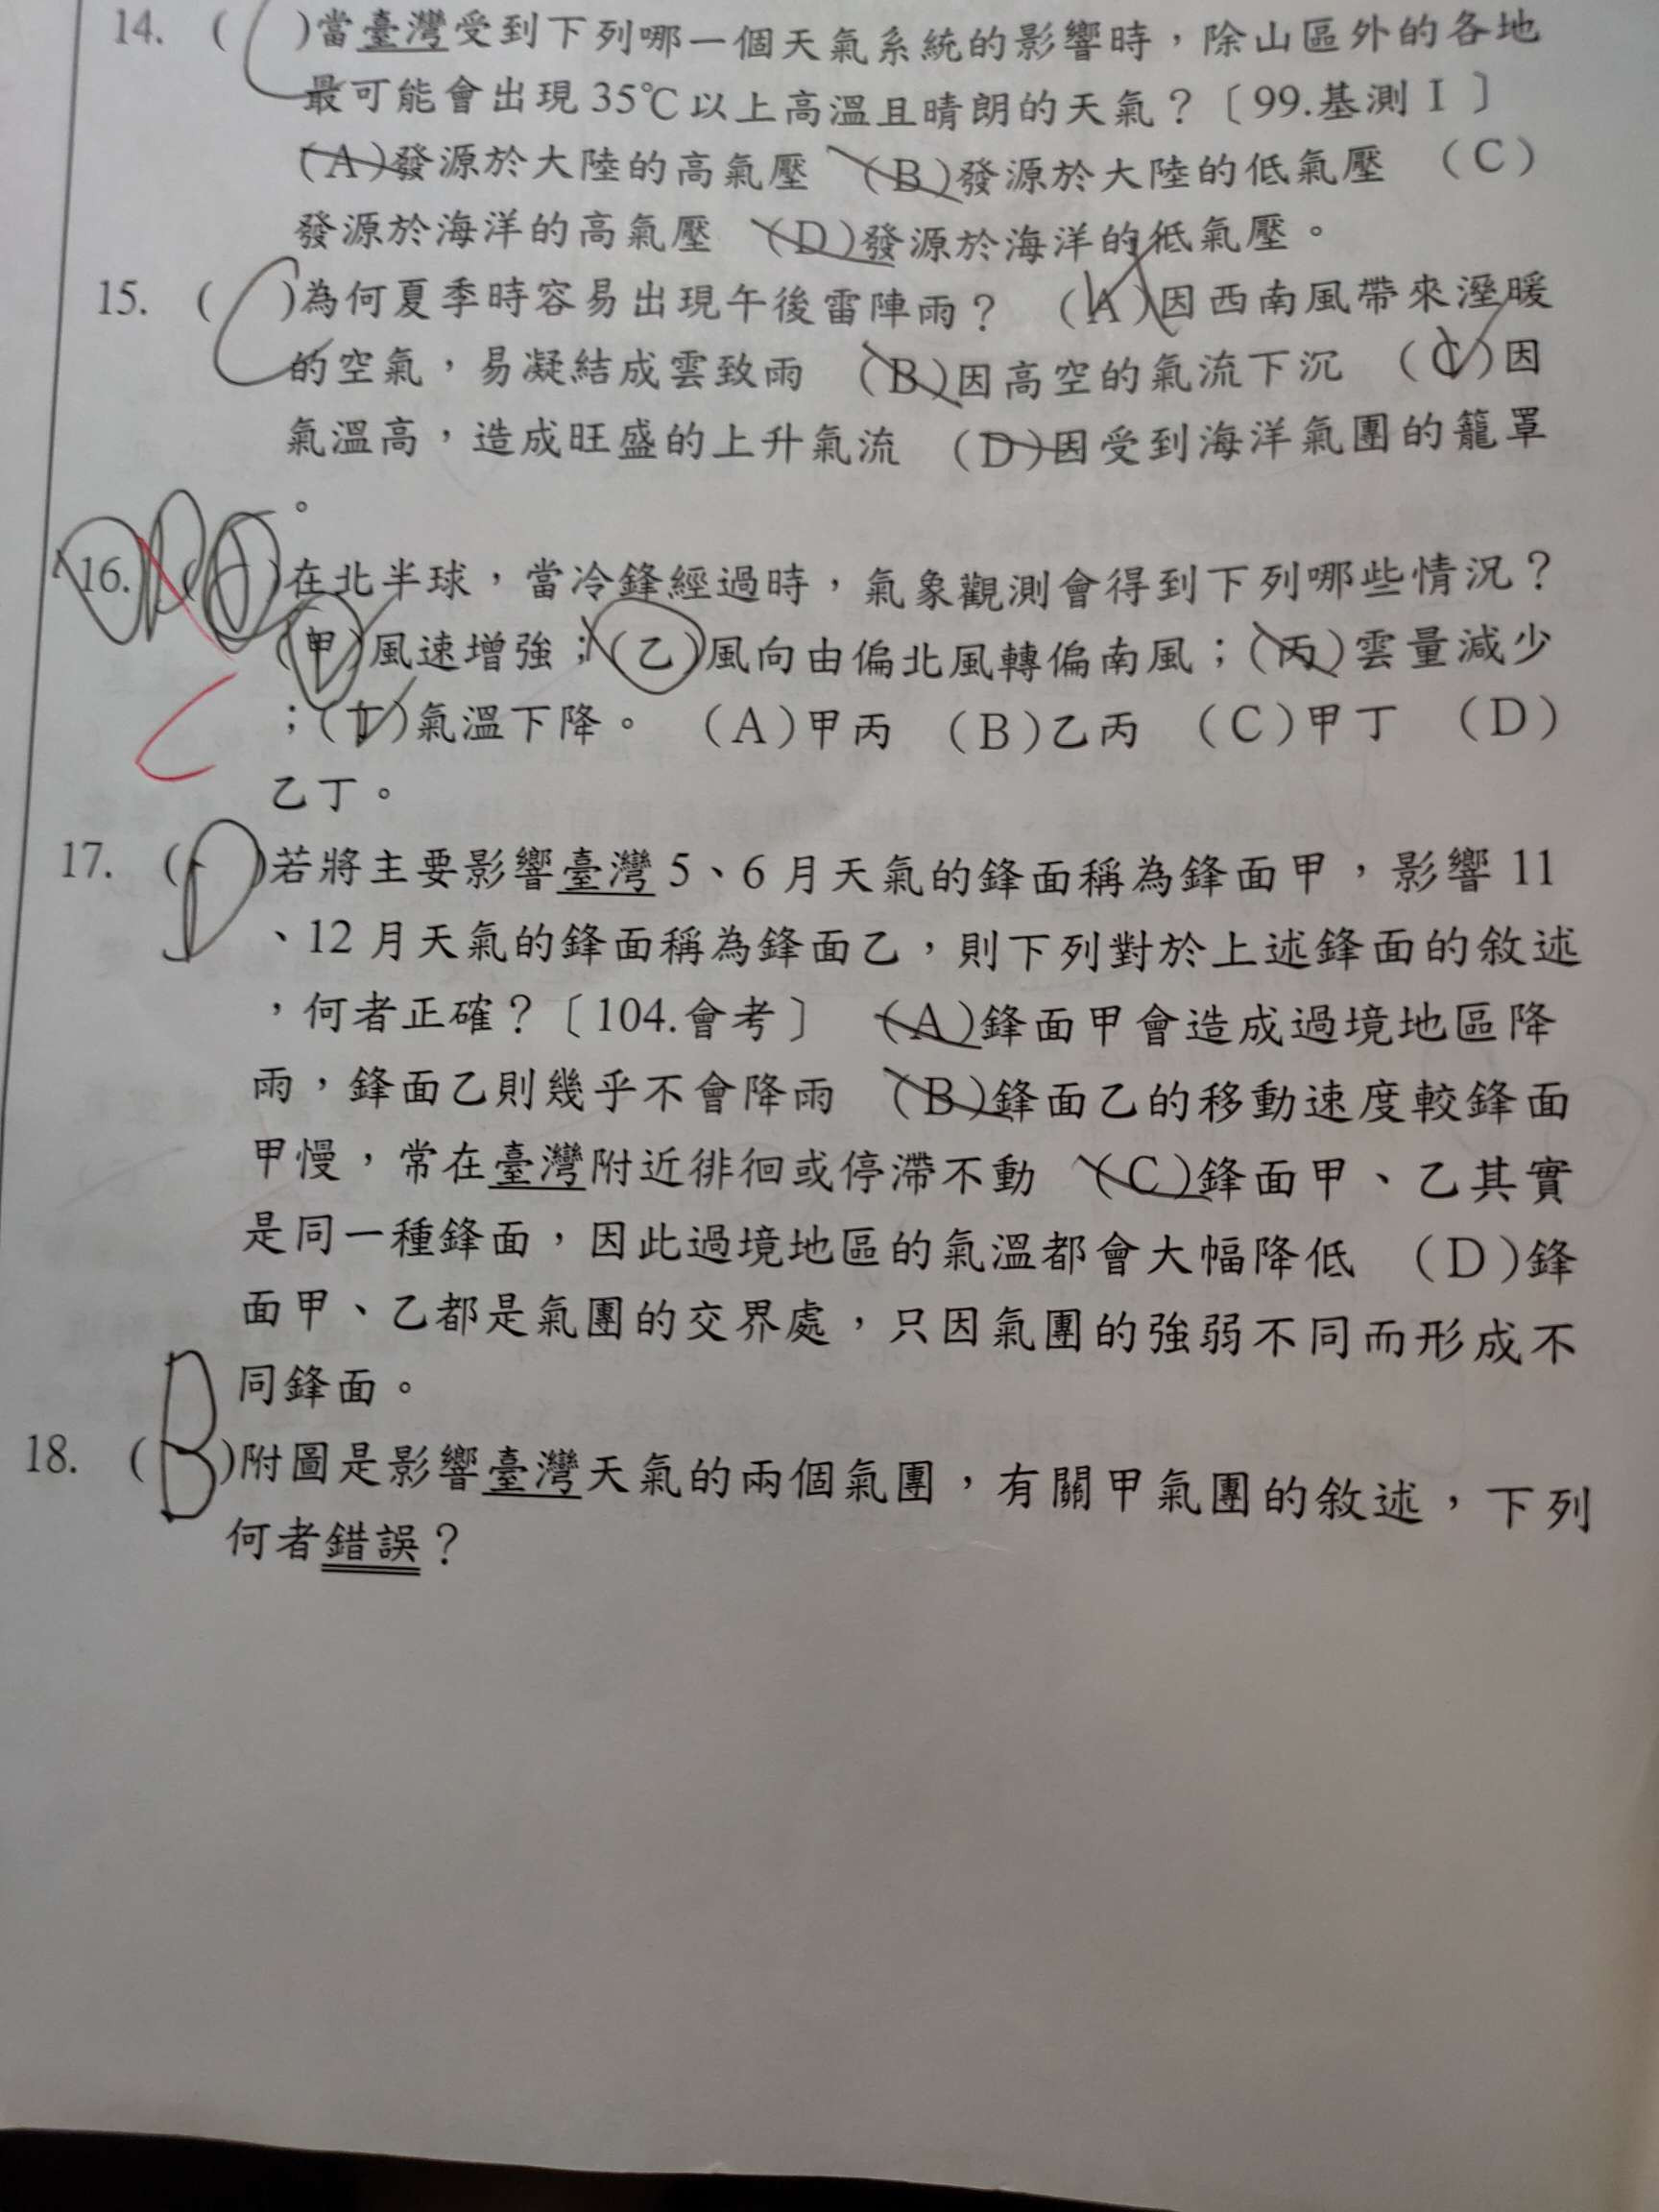 14. (C)當臺灣受到下列哪一個天氣系統的影響時，除山區外的各地
最可能會出現35℃以上高溫且晴朗的天氣？〔99.基測Ⅰ〕
(A)發源於大陸的高氣壓 (B)發源於大陸的低氣壓 (C)
發源於海洋的高氣壓 (D)發源於海洋的低氣壓。
15. (C)為何夏季時容易出現午後雷陣雨？ (A)因西南風帶來溼暖
的空氣，易凝結成雲致雨 (B)因高空的氣流下沉 (C)因
氣溫高，造成旺盛的上升氣流 (D)因受到海洋氣團的籠罩
。
16. ( )在北半球，當冷鋒經過時，氣象觀測會得到下列哪些情況？
(甲)風速增強；(乙)風向由偏北風轉偏南風；(丙)雲量減少
；(丁)氣溫下降。 (A)甲丙 (B)乙丙 (C)甲丁 (D)
C
乙丁。
17. (D)若將主要影響臺灣5、6月天氣的鋒面稱為鋒面甲，影響11
、12月天氣的鋒面稱為鋒面乙，則下列對於上述鋒面的敘述
，何者正確？〔104.會考〕 (A)鋒面甲會造成過境地區降
雨，鋒面乙則幾乎不會降雨 (B)鋒面乙的移動速度較鋒面
甲慢，常在臺灣附近徘徊或停滯不動 (C)鋒面甲、乙其實
是同一種鋒面，因此過境地區的氣溫都會大幅降低 (D)鋒
面甲、乙都是氣團的交界處，只因氣團的強弱不同而形成不
同鋒面。
18. (B)附圖是影響臺灣天氣的兩個氣團，有關甲氣團的敘述，下列
何者錯誤？